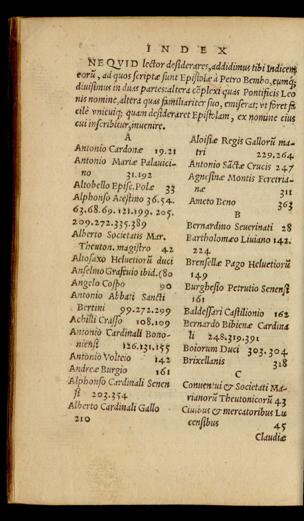 INDEX
NE QUID lector desiderares, addidimus tibi Indicem
eorũ, ad quos scriptæ sunt Epistolæ à Petro Bembo, eumq;
diuisimus in duas partes: altera cõplexi quas Pontificis Leo
nis nomine, altera quas familiariter suo, emiserat; vt foret fa
cilè vnicuiq; quam desideraret Epistolam, ex nomine eius
cui inscribitur, inuenire.
A
Antonio Cardonæ 19.21
Antonio Mariæ Palauici-
no 31.192
Altobello Episc. Polæ 33
Alphonso Atestino 36.54.
63.68.69.121.199.205.
209.272.335.389
Alberto Societatis Mar.
Theuton. magistro 42
Altosaxo Heluetiorũ duci
Anselmo Gratuio ibid. (80
Angelo Cospo 90
Antonio Abbati Sancti
Bertini 99.272.299
Achilli Crasso 108.109
Antonio Cardinali Bono-
niensi 126.131.155
Antonio Volteio 142
Andreæ Burgio 161
Alphonso Cardinali Senen
si 203.354
Alberto Cardinali Gallo
210
Aloisiæ Regis Gallorũ ma-
tri 229.264
Antonio Sãctæ Crucis 247
Agnesinæ Montis Feretria-
næ 311
Ameto Beno 363
B
Bernardino Seuerinati 28
Bartholomæo Liuiano 142.
224
Brensellæ Pago Heluetiorũ
149
Burghesio Petrutio Senensi
161
Baldessari Castilionio 162
Bernardo Bibienæ Cardina
li 248.319.391
Boiorum Duci 303.304
Brixellanis 328
C
Conuentui & Societati Ma-
rianorũ Theutonicorũ 43
Ciuibus & mercatoribus Lu
censibus 45
Claudiæ